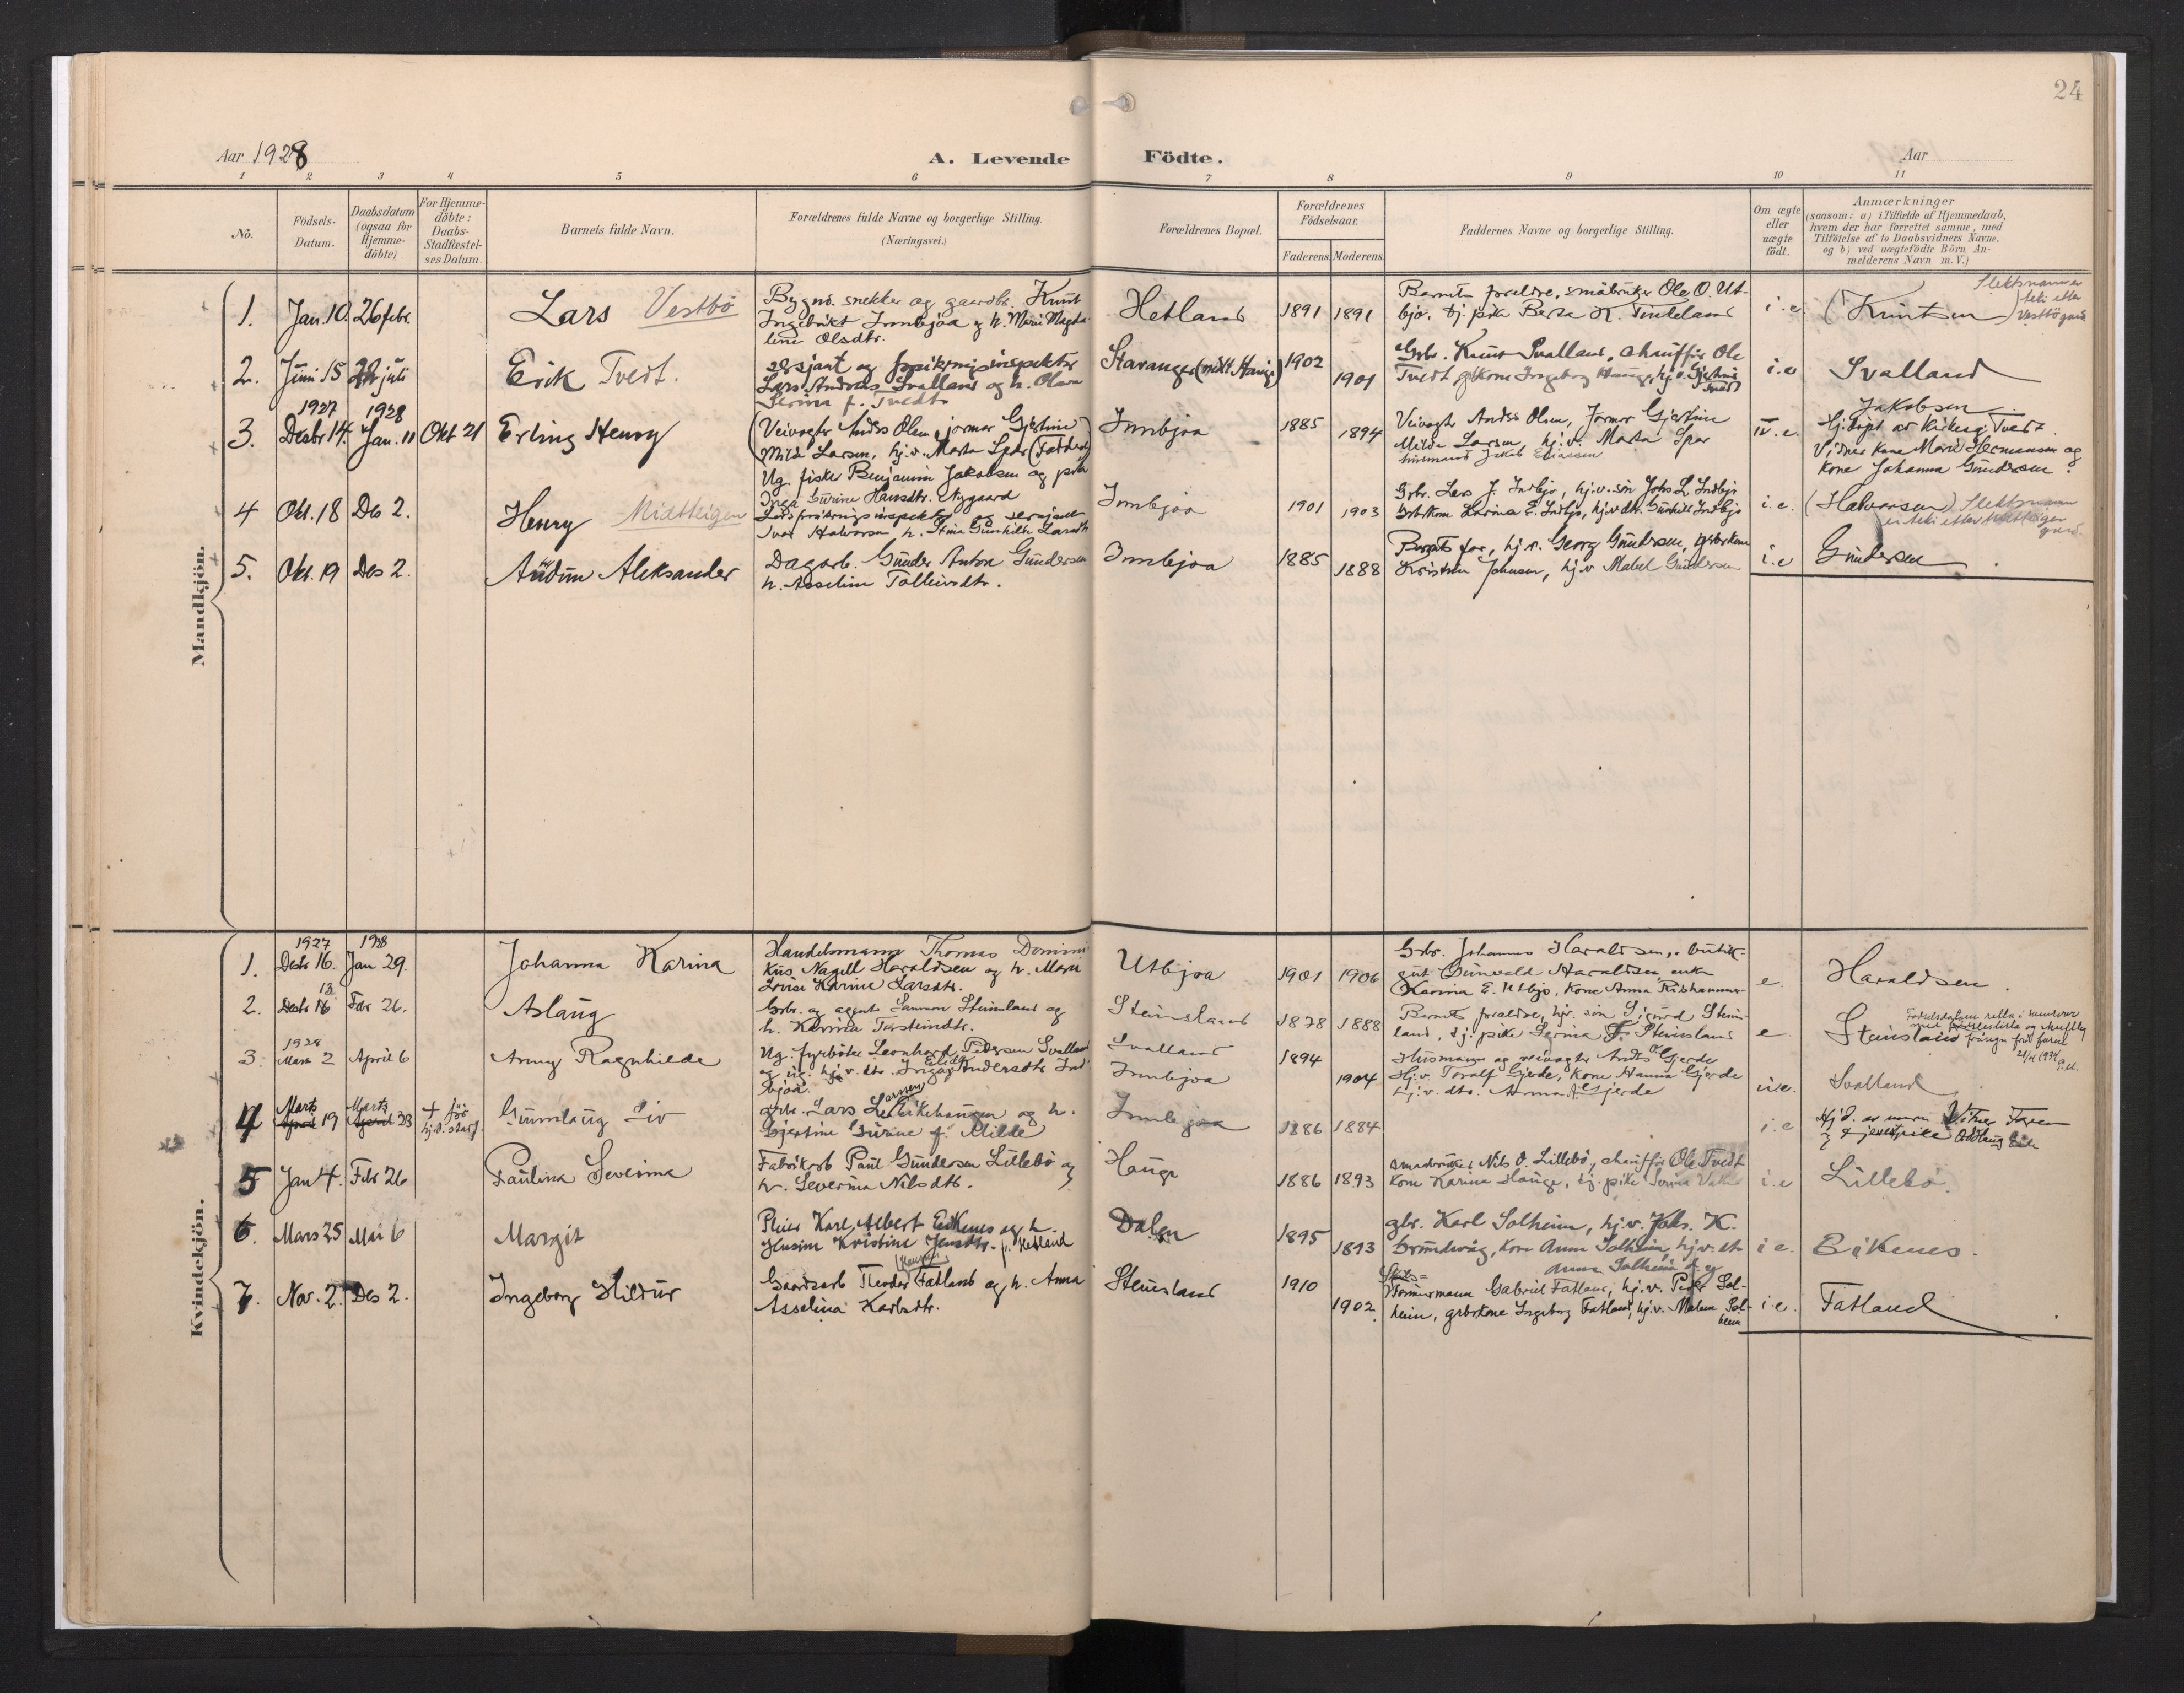 24
Aar 1928
A. Levende Födte.
Aar
1 2 3 4 5 6 7 8 9 10 11
No.
Födsels-
Datum.
Daabsdatum
(ogsaa for
Hjemme-
döbte)
For Hjemme-
döbte:
Daabs-
Stadfæstel-
ses Datum.
Barnets fulde Navn.
Forældrenes fulde Navne og borgerlige Stilling.
(Næringsvei.)
Forældrenes Bopæl.
Forældrenes
Födselsaar.
Faderens. Moderens.
Faddernes Navne og borgerlige Stilling.
Om ægte
eller
uægte
födt.
Anmærkninger
(saasom: a) i Tilfælde af Hjemmedaab,
hvem der har forrettet samme, med
Tilföielse af to Daabsvidners Navne,
og b) ved uægtefödte Börn An-
melderens Navn m. V.)
Mandkjön.
1. Jan. 10. 26 febr. Lars Vestbö
Bygn. snekker og gaardbr. Knut
Ingebrikt Innbjoa og h. Marie Magda
line Olsdtr.
Hetland 1891 1891
Barnets foreldre, småbruker Ole O. Ut-
bjo, tj. pike Berta K. Tindeland
i. e. (Knutsen)
Slektsnavnet
Vestbö
2. Juni 15 22 juli Erik Tvedt.
sersjant og forsikringsinspektör
Lars Andreas Svalland og h. Olava
Serina f. Tvedt
Stavanger (midl. Hauge) 1902 1901
Grbr. Knut Svalland, chaufför Ole
Tvedt, grkone Ingeborg Hauge, hj.v. Gjertine
Tvedt
i. e Svalland
3. 1927 Desbr 14. 1928 Jan. 11 Okt 21 Erling Henry
(Veivogter Andrs Olsen, jormor Gjertine
Milde Larsen, hj.v. Marta Spar (Faddere)
Ug. fisker Benjamin Jakobsen og pike
Inga Gurine Hansdtr. Nygaard
Innbjoa 1885 1894
Veivogter Andrs Olsen, Jormor Gjertine
Milde Larsen, hj.v. Marta Spar
husmand Jakob
u. e. Jakobsen
Hj.döpt av kirkesg. Tvedt.
Vidner Kone Marie Hermansen og
Kone Johanna Gundersen.
4 Okt. 18 Des 2. Henry Midtteigen
Livsforsikringsinspektör og sersjant
Ivar Halvorsen h. Stina Gunhilde Larsdtr
Innbjoa 1901 1903
Grbr. Lars J. Indbjo, hj.v. sön Johs L Indbjo
Grbrkone Larina E. Indbjo, hj.v dtr. Gunhild Indbjo
i. e. (Halvorsen) Slektsnavn
er teke etter Midtteigen
gard.
5. Okt. 19 Des 2. Audun Aleksander
Dagarb. Gunder Anton Gundersen
h. Asseline Tolleivsdtr.
Innbjoa 1885 1888
Barnets far, hj.v. Georg Gundersen, grbrkone
Kristine Johnsen, hj.v Mabel Gundersen
i. e Gundersen
Kvindekjön.
1. 1927 Desbr 16. 1928 Jan 29. Johanna Karina
Handelsmann Thomas Domini
kus Nagell Haraldsen og h. Marie
Lovise Karine Larsdtr.
Utbjoa 1901 1906
Grbr. Johannes Haraldsen, butik-
gut Gunvald Haraldsen, enke
Karina E. Utbjo, Kone Anna Rishammer
e. Haraldsen.
2. Desbr 16 13 Febr 26. Aslaug
Grbr. og agent Steinsland og
h. Karina Torsteinsdtr.
Steinsland 1878 1888
Barnets foreldre, hjv. sön Sigurd Steins-
land, tj. pike Serina F. Steinsland
e Steinsland
Födselsdatum retta i samsvar
med fråsegn frå faren
21/4 1934
3. 1928 Mars 2 April 6 Anny Ragnhilde
Ug. fyrböter Leonhard Pedersen Svalland
og ug. hj.v. dtr. Inga Elida Andersdtr Ind
bjoa
Svalland
Innbjoa 1894 1904
Husmann og veivogter Andrs O. Gjerde
Hj.v. Toralf Gjerde, Kone Hanna Gjerde
hj.v. dtr. Anna A. Gjerde
u.e. Svalland
4 Marts April 19 Marts April 23 + för
hj.d. stadf. Gunnlaug Liv
grbr. Lars Larsen Leirikehaugen og h.
Gjertine Gurine f. Milde
Innbjoa 1886 1884
i. e
Hj.d. av Vitner Faren
og tjenestepike
5 Jan 4. Febr 26 Paulina Severina
Fabrikarb Paul Gundersen Lillebö og
h. Severina Nilsdtr.
Hauge 1886 1893
smaabruker Nils O. Lillebö, chaufför Ole Tvedt
Kone Karina Hauge, tj. pike Serina
i. e Lillebö.
6. Mars 25 Mai 6 Margit
Pleier Karl Albert Eikenes og h.
Husine Kristine Jensdtr. f. Hetland
Dalen 1895 1893
gbr. Karl Solheim, hj.v. Johs. K.
Grundevåg, Kone Anna Solheim, hj.v. dtr
Anna Solheim d. y
i e. Eikenes.
7. Nov. 2. Des 2. Ingeborg Hildur
Gaardsarb Theodor Fatland og h. Anna
Asselina Karlsdtr.
Steinsland 1910 1902.
Gabriel Fatland, hj.v. Peder Sol-
heim, grbrkone Ingeborg Fatland, hj.v. Malene Sol-
heim
i. e. Fatland